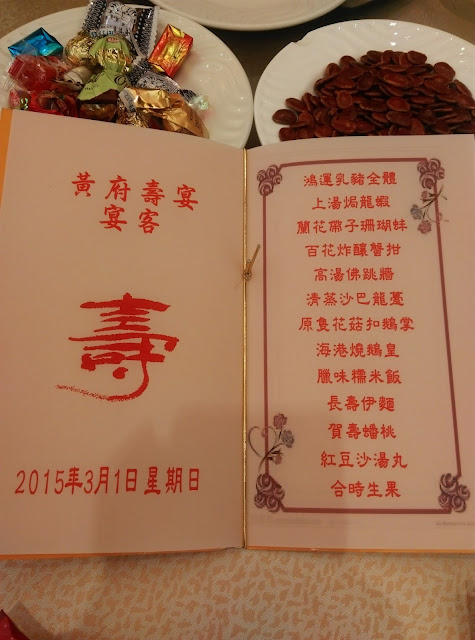 黃府壽宴
宴客
壽
2015年3月1日星期日
鴻運乳豬全體
上湯焗龍蝦
蘭花帶子珊瑚蚌
百花炸釀蟹拑
高湯佛跳牆
清蒸沙巴龍躉
原隻花菇扣鵝掌
海港燒鵝皇
臘味糯米飯
長壽伊麵
賀壽蟠桃
紅豆沙湯丸
合時生果